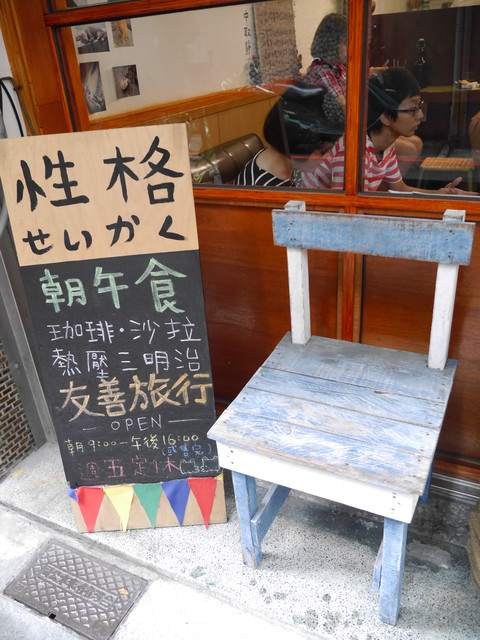 性格
せいかく
朝午食
珈琲·沙拉
熱壓三明治
友善旅行
—OPEN—
朝9:00—午後16:00
(或售完)
週五定休